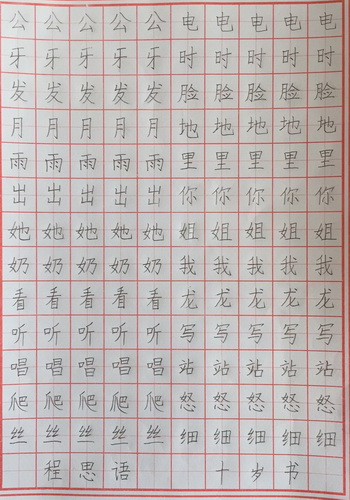 公公公公公电电电电电
牙牙牙牙牙时时时时时
发发发发发脸脸脸脸脸
月月月月月地地地地地
雨雨雨雨雨里里里里里
出出出出出你你你你你
她她她她她姐姐姐姐姐
奶奶奶奶奶我我我我我
看看看看看龙龙龙龙龙
听听听听听写写写写写
唱唱唱唱唱站站站站站
爬爬爬爬爬怒怒怒怒怒
丝丝丝丝丝细细细细细
程思语 十岁书